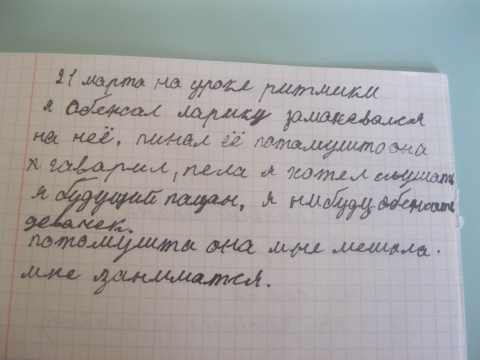 21 марта на уроке ритмики
я обежал ларику замахевался
на неё, пинал её потамушто она
х гаварил, пела я хотел слушать
я будущий пацан, я нибуду обежать
девачек.
потамушта она мне мешола.
мне заниматся.